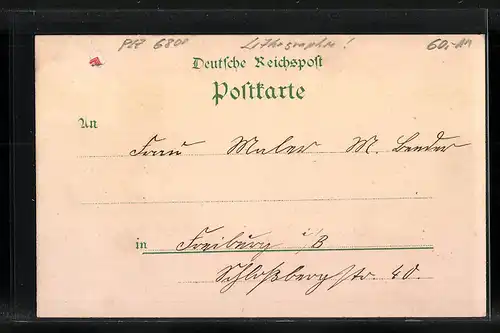 PLZ 6800 Lithographie! 60,-
Deutsche Reichspost
Postkarte
An
Frau Maler M. Bender
in Freiburg i/B
Schloßbergstr. 40